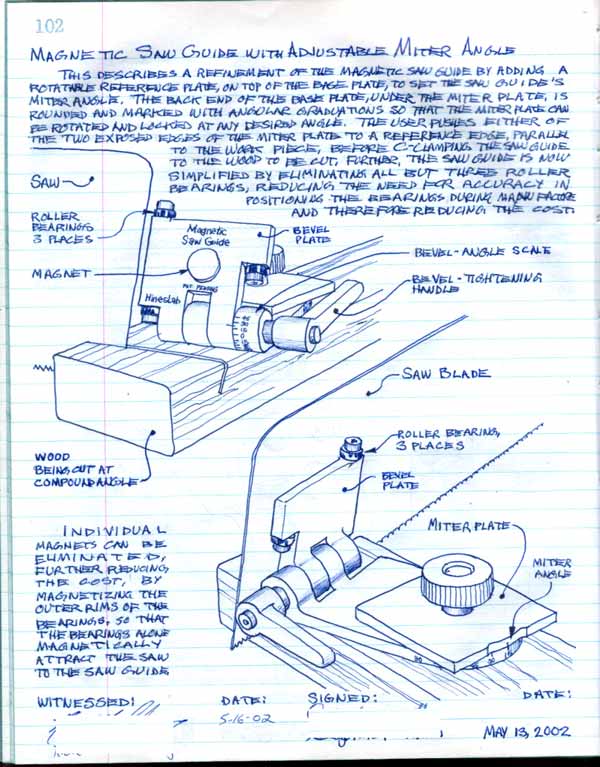 102
MAGNETIC SAW GUIDE WITH ADJUSTABLE MITER ANGLE
THIS DESCRIBES A REFINEMENT OF THE MAGNETIC SAW GUIDE BY ADDING A
ROTATABLE REFERENCE PLATE, ON TOP OF THE BASE PLATE, TO SET THE SAW GUIDE'S
MITER ANGLE. THE BACK END OF THE BASE PLATE, UNDER THE MITER PLATE, IS
ROUNDED AND MARKED WITH ANGULAR GRADUATIONS SO THAT THE MITER PLATE CAN
BE ROTATED AND LOCKED AT ANY DESIRED ANGLE. THE USER PUSHES EITHER OF
THE TWO EXPOSED EDGES OF THE MITER PLATE TO A REFERENCE EDGE, PARALLEL
TO THE WORK PIECE, BEFORE C-CLAMPING THE SAW GUIDE
TO THE WOOD TO BE CUT. FURTHER, THE SAW GUIDE IS NOW
SIMPLIFIED BY ELIMINATING ALL BUT THREE ROLLER
BEARINGS, REDUCING THE NEED FOR ACCURACY IN
POSITIONING THE BEARINGS DURING
AND THEREFORE REDUCING THE COST.
SAW
ROLLER
BEARINGS
3 PLACES
MAGNET
Magnetic
Saw Guide
PAT PENDING
Hineslab
BEVEL
PLATE
BEVEL-ANGLE SCALE
BEVEL-TIGHTENING
HANDLE
SAW BLADE
WOOD
BEING CUT AT
COMPOUND ANGLE
ROLLER BEARING,
3 PLACES
BEVEL
PLATE
MITER PLATE
MITER
ANGLE
INDIVIDUAL
MAGNETS CAN BE
ELIMINATED,
FURTHER REDUCING
THE COST, BY
MAGNETIZING THE
OUTER RIMS OF THE
BEARINGS, SO THAT
THE BEARINGS ALONE
MAGNETICALLY
ATTRACT THE SAW
TO THE SAW GUIDE
WITNESSED:
DATE:
SIGNED:
DATE:
5-16-02
MAY 13, 2002